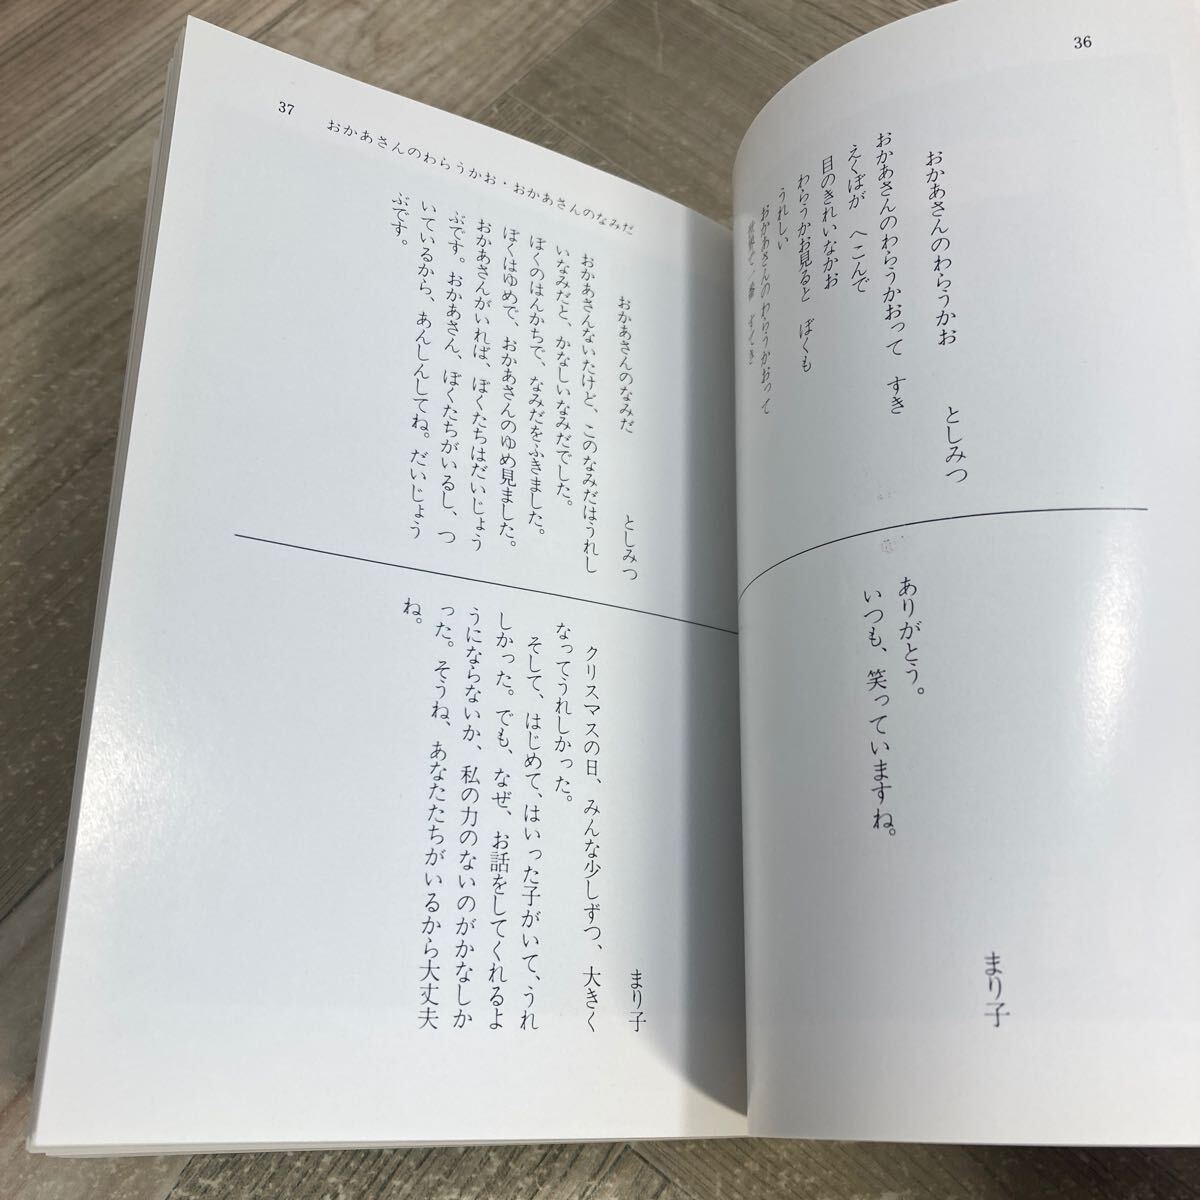 36
おかあさんのわらうかお　としみつ
おかあさんのわらうかおって　すき
えくぼが　へこんで
目のきれいなかお
わらうかお見ると　ぼくも
うれしい
おかあさんのわらうかおって
世界で一番　すてき
まり子
ありがとう。
いつも、笑っていますね。
37　おかあさんのわらうかお・おかあさんのなみだ
おかあさんのなみだ　としみつ
おかあさんないたけど、このなみだはうれし
いなみだと、かなしいなみだでした。
ぼくのはんかちで、なみだをふきました。
ぼくはゆめで、おかあさんのゆめ見ました。
おかあさんがいれば、ぼくたちはだいじょう
ぶです。おかあさん、ぼくたちがいるし、つ
いているから、あんしんしてね。だいじょう
ぶです。
まり子
クリスマスの日、みんな少しずつ、大きく
なってうれしかった。
そして、はじめて、はいった子がいて、うれ
しかった。でも、なぜ、お話をしてくれるよ
うにならないか、私の力のないのがかなしか
った。そうね、あなたたちがいるから大丈夫
ね。